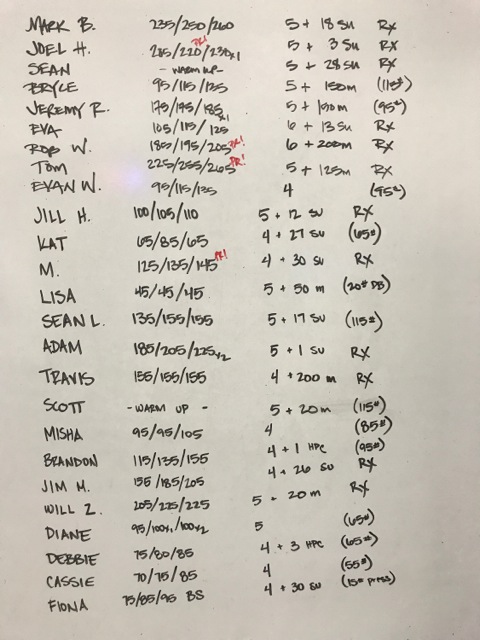 MARK B. 235/250/260 5 + 18 SU RX
JOEL H. 215/220/230x1 PR! 5 + 3 SU RX
SEAN - WARM UP - 5 + 28 SU RX
BRYCE 95/115/135 5 + 150m (115#)
JEREMY R. 175/195/185 5 + 190m (95#)
EVA 105/115/125x1 6 + 13 SU RX
ROB W. 185/195/205 PR! 6 + 200m RX
TOM 225/255/265 PR! 5 + 125m RX
EVAN W. 95/115/135 4 (95#)
JILL H. 100/105/110 5 + 12 SU RX
KAT 65/85/65 4 + 27 SU (65#)
M. 125/135/145 PR! 4 + 30 SU RX
LISA 45/45/45 5 + 50 m (20# DB)
SEAN L. 135/155/155 5 + 17 SU (115#)
ADAM 185/205/225x2 5 + 1 SU RX
TRAVIS 155/155/155 4 + 200 m RX
SCOTT - WARM UP - 5 + 20m (115#)
MISHA 95/95/105 4 (85#)
BRANDON 115/135/155 4 + 1 HPC (95#)
JIM M. 155/185/205 4 + 26 SU RX
WILL Z. 205/225/225 5 + 20m RX
DIANE 95/100x1/100x2 5 (65#)
DEBBIE 75/80/85 4 + 3 HPC (65#)
CASSIE 70/75/85 4 (55#)
FIONA 75/85/95 BS 4 + 30 SU (15# PRESS)